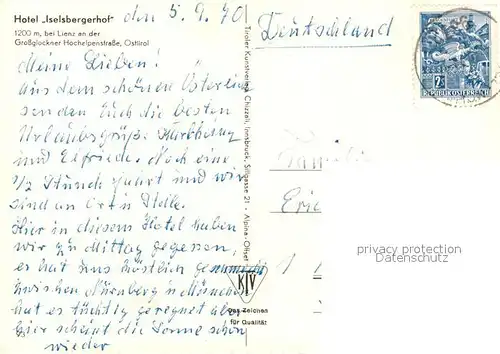 Hotel „Iselsbergerhof"
1200 m, bei Lienz an der
Großglockner Hochalpenstraße, Osttirol
den 5.9.70
Meine Lieben!
Aus dem schönen Österreich
senden Euch die besten
Urlaubsgrüße
und Elfriede. Noch eine
1/2 Stunde Fahrt und wir
sind an Ort u. Stelle.
Hier in diesem Hotel haben
wir zu Mittag gegessen,
es hat uns köstlich geschmeckt
zwischen Nürnberg u München
hat es tüchtig geregnet aber
hier scheint die Sonne schon
wieder
Tiroler Kunstverlag Chizzali, Innsbruck, Sillgasse 21 - Alpina-Offset
KTV
Das Zeichen
für Qualität
Deutschland
REPUBLIK ÖSTERREICH
Familie
privacy protection
Datenschutz